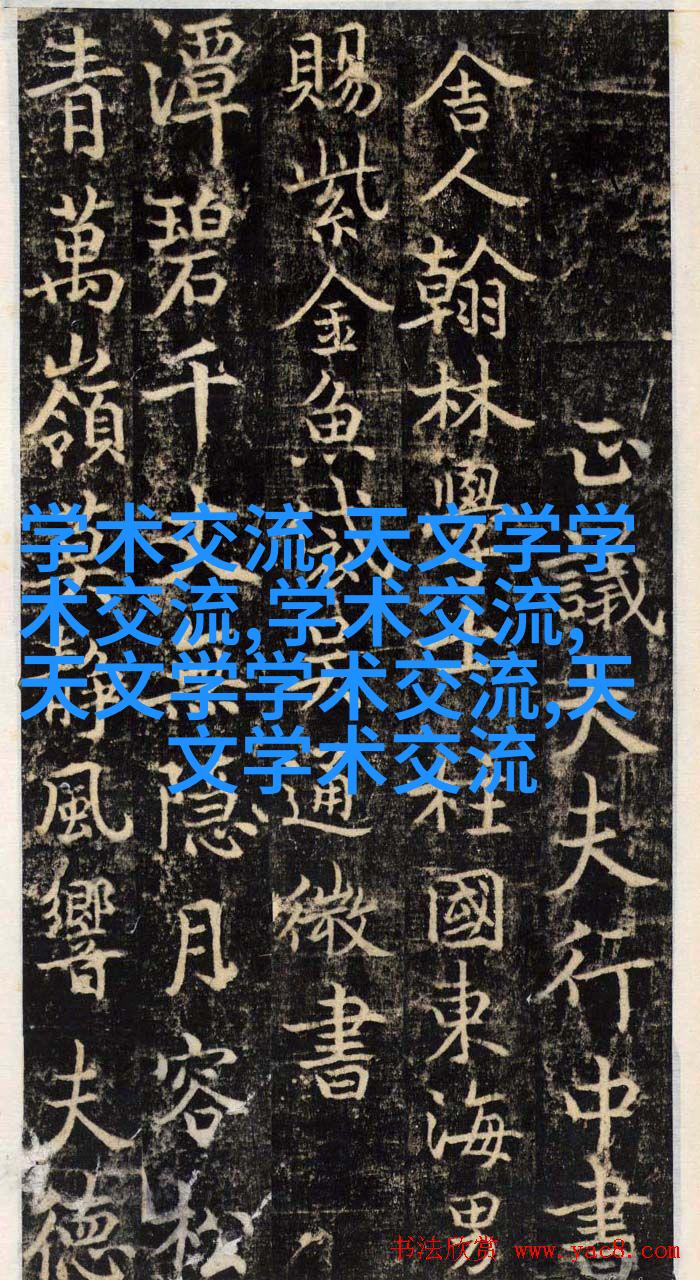 正議大夫行中書
舍人翰林學士柱國東海男
賜紫金魚通微書
潭碧千隐月容松
青萬嶺靜風響夫德
学术交流,天文学学
术交流,学术交流,
天文学学术交流,天
文学术交流
书法欣赏 www.yac8.com